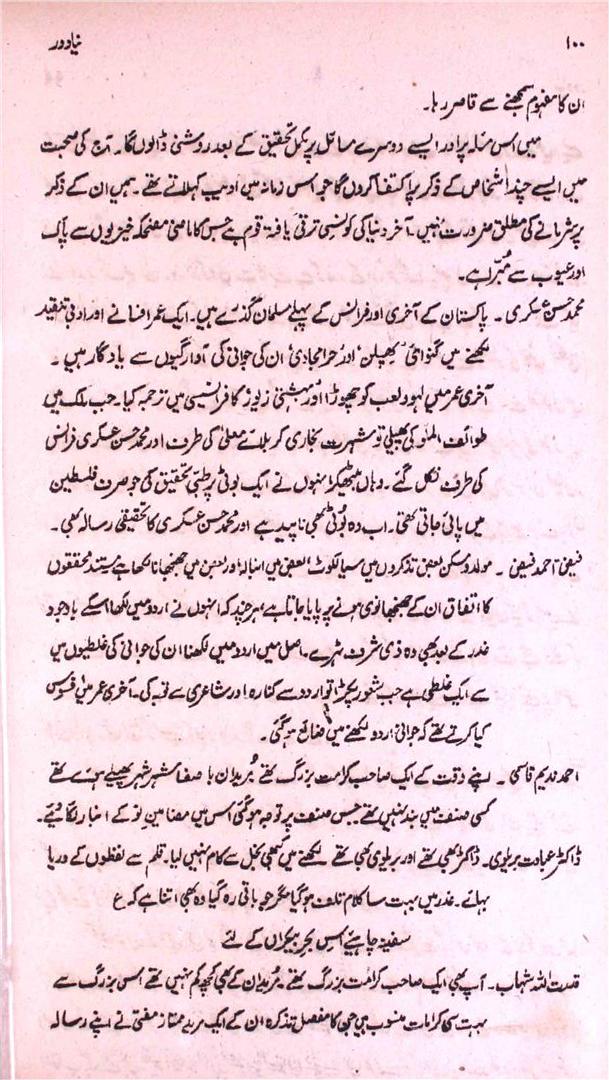 ۱۰۰
نیا دور
ان کا مفہوم سمجھنے سے قاصر رہا۔
میں اس مسئلہ پر اور ایسے دوسرے مسائل پر مکمل تحقیق کے بعد روشنی ڈالوں گا۔ آج کی صحبت
میں ایسے چند اشخاص کے ذکر پر اکتفا کروں گا جو اس زمانہ میں ادیب کہلاتے تھے۔ ہمیں ان کے ذکر
پر شرمانے کی مطلق ضرورت نہیں۔ آخر دنیا کی کونسی ترقی یافتہ قوم ہے جس کا ماضی مضحکہ خیزیوں سے پاک
اور عیوب سے مبرّا ہے۔
محمد حسن عسکری۔ پاکستان کے آخری اور فرانس کے پہلے مسلمان گذرے ہیں۔ ایک عمر افسانے اور ادبی تنقید
لکھنے میں گنوائی 'پھسلن' اور 'حرامجادی' ان کی جوانی کی آوارگیوں سے یادگار ہیں۔
آخری عمر میں لہو و لعب کو چھوڑا اور بہشتی زیور کا فرانسیسی میں ترجمہ کیا۔ جب ملک میں
طوائف الملوکی پھیلی تو شہرت بخاری کربلائے معلیٰ کی طرف اور محمد حسن عسکری فرانس
کی طرف نکل گئے۔ وہاں بیٹھ کر انہوں نے ایک بوٹی پر طبی تحقیق کی جو صرف فلسطین
میں پائی جاتی تھی۔ اب وہ بوٹی بھی ناپید ہے اور محمد حسن عسکری کا تحقیقی رسالہ بھی۔
فیض احمد فیض۔ مولد و مسکن بعض تذکروں میں سیالکوٹ بعض میں انبالہ اور بعض میں جھنجانا لکھا ہے مستند محققوں
کا اتفاق ان کے جھنجانوی ہونے پر پایا جاتا ہے، ہر چند کہ انہوں نے اردو میں لکھا اسکے باوجود
غدر کے بعد بھی وہ ذی شرف ٹہرے۔ اصل میں اردو میں لکھنا ان کی جوانی کی غلطیوں میں
سے ایک غلطی ہے جب شعور پکڑا تو اردو سے کنارہ اور شاعری سے توبہ کی۔ آخری عمر میں افسوس
کیا کرتے تھے کہ جوانی اردو لکھنے میں ضائع ہو گئی۔
احمد ندیم قاسمی۔ اپنے وقت کے ایک صاحب کرامت بزرگ تھے۔ مریدان باصفا شہر شہر پھیلے ہوئے تھے
کسی صنف میں بند نہیں تھے جس صنف پر توجہ ہو گئی اس میں مضامین نو کے انبار لگا دئیے۔
ڈاکٹر عبادت بریلوی۔ ڈاکٹر بھی تھے اور بریلوی بھی تھے لکھنے میں کبھی بخل سے کام نہیں لیا۔ قلم سے لفظوں کے دریا
بہائے۔ غدر میں بہت سا کلام تلف ہو گیا مگر جو باقی رہ گیا وہ بھی اتنا ہے کہ ع
سفینہ چاہئیے اس بحر بیکراں کے لئے
قدرت اللہ شہاب۔ آپ بھی ایک صاحب کرامت بزرگ تھے۔ مریدان کے بھی کچھ کم نہیں تھے اس بزرگ سے
بہت سی کرامات منسوب ہیں جن کا مفصل تذکرہ ان کے ایک مرید ممتاز مفتی نے اپنے رسالہ